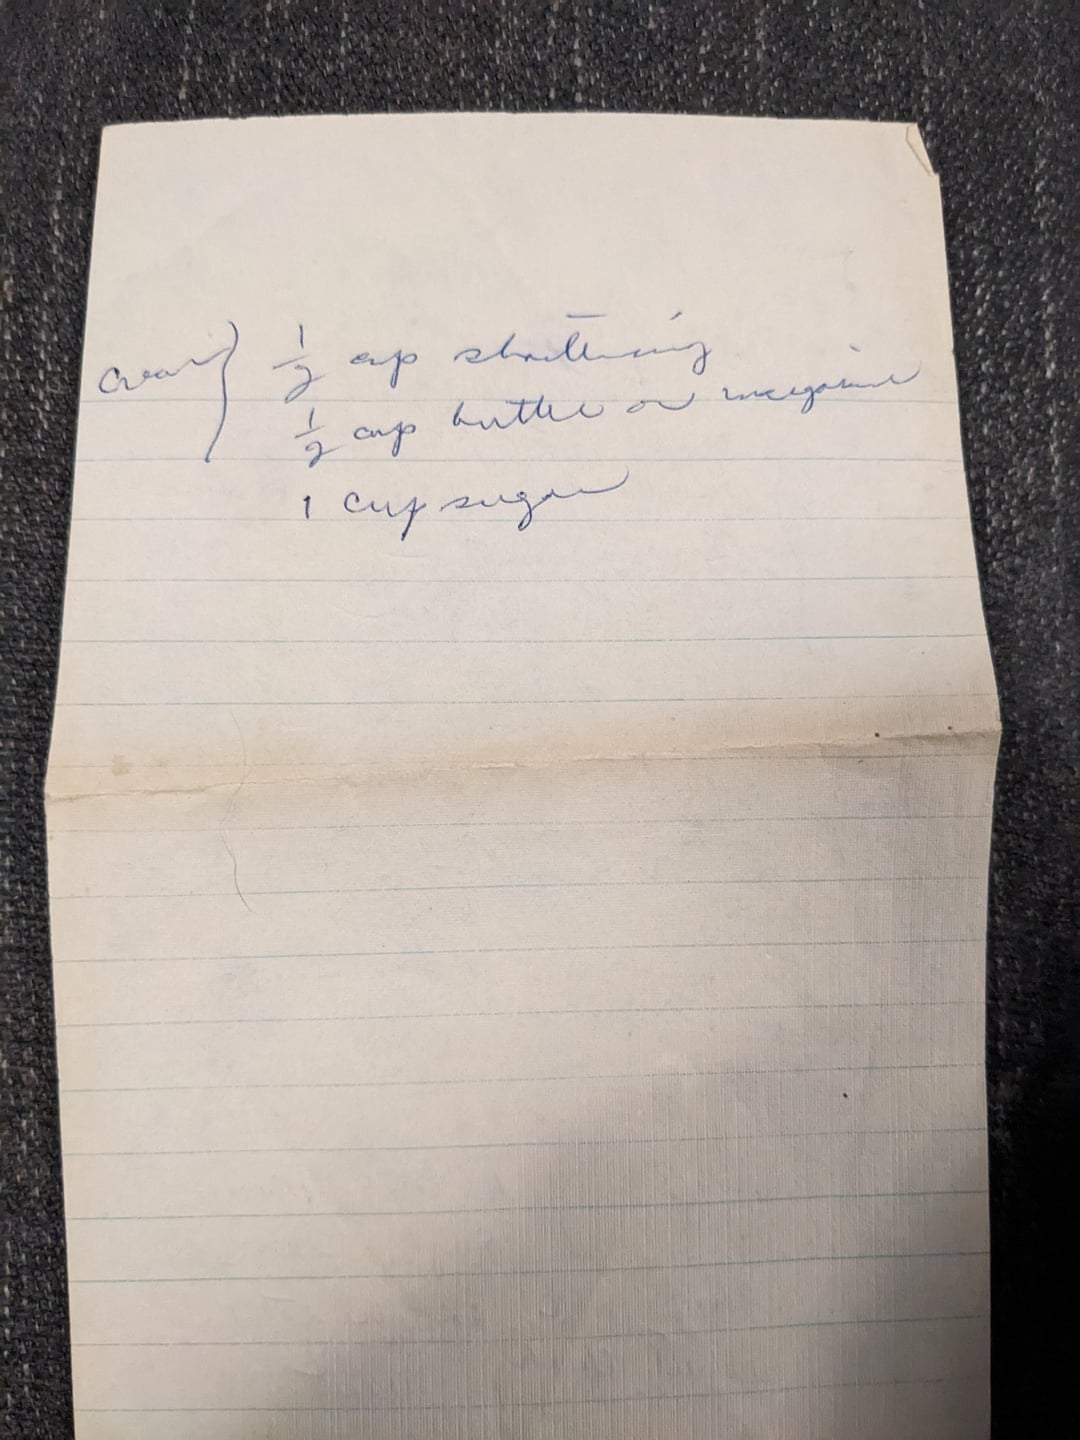 Cream } 1/2 cup shortening
1/2 cup butter or margarine
1 cup sugar